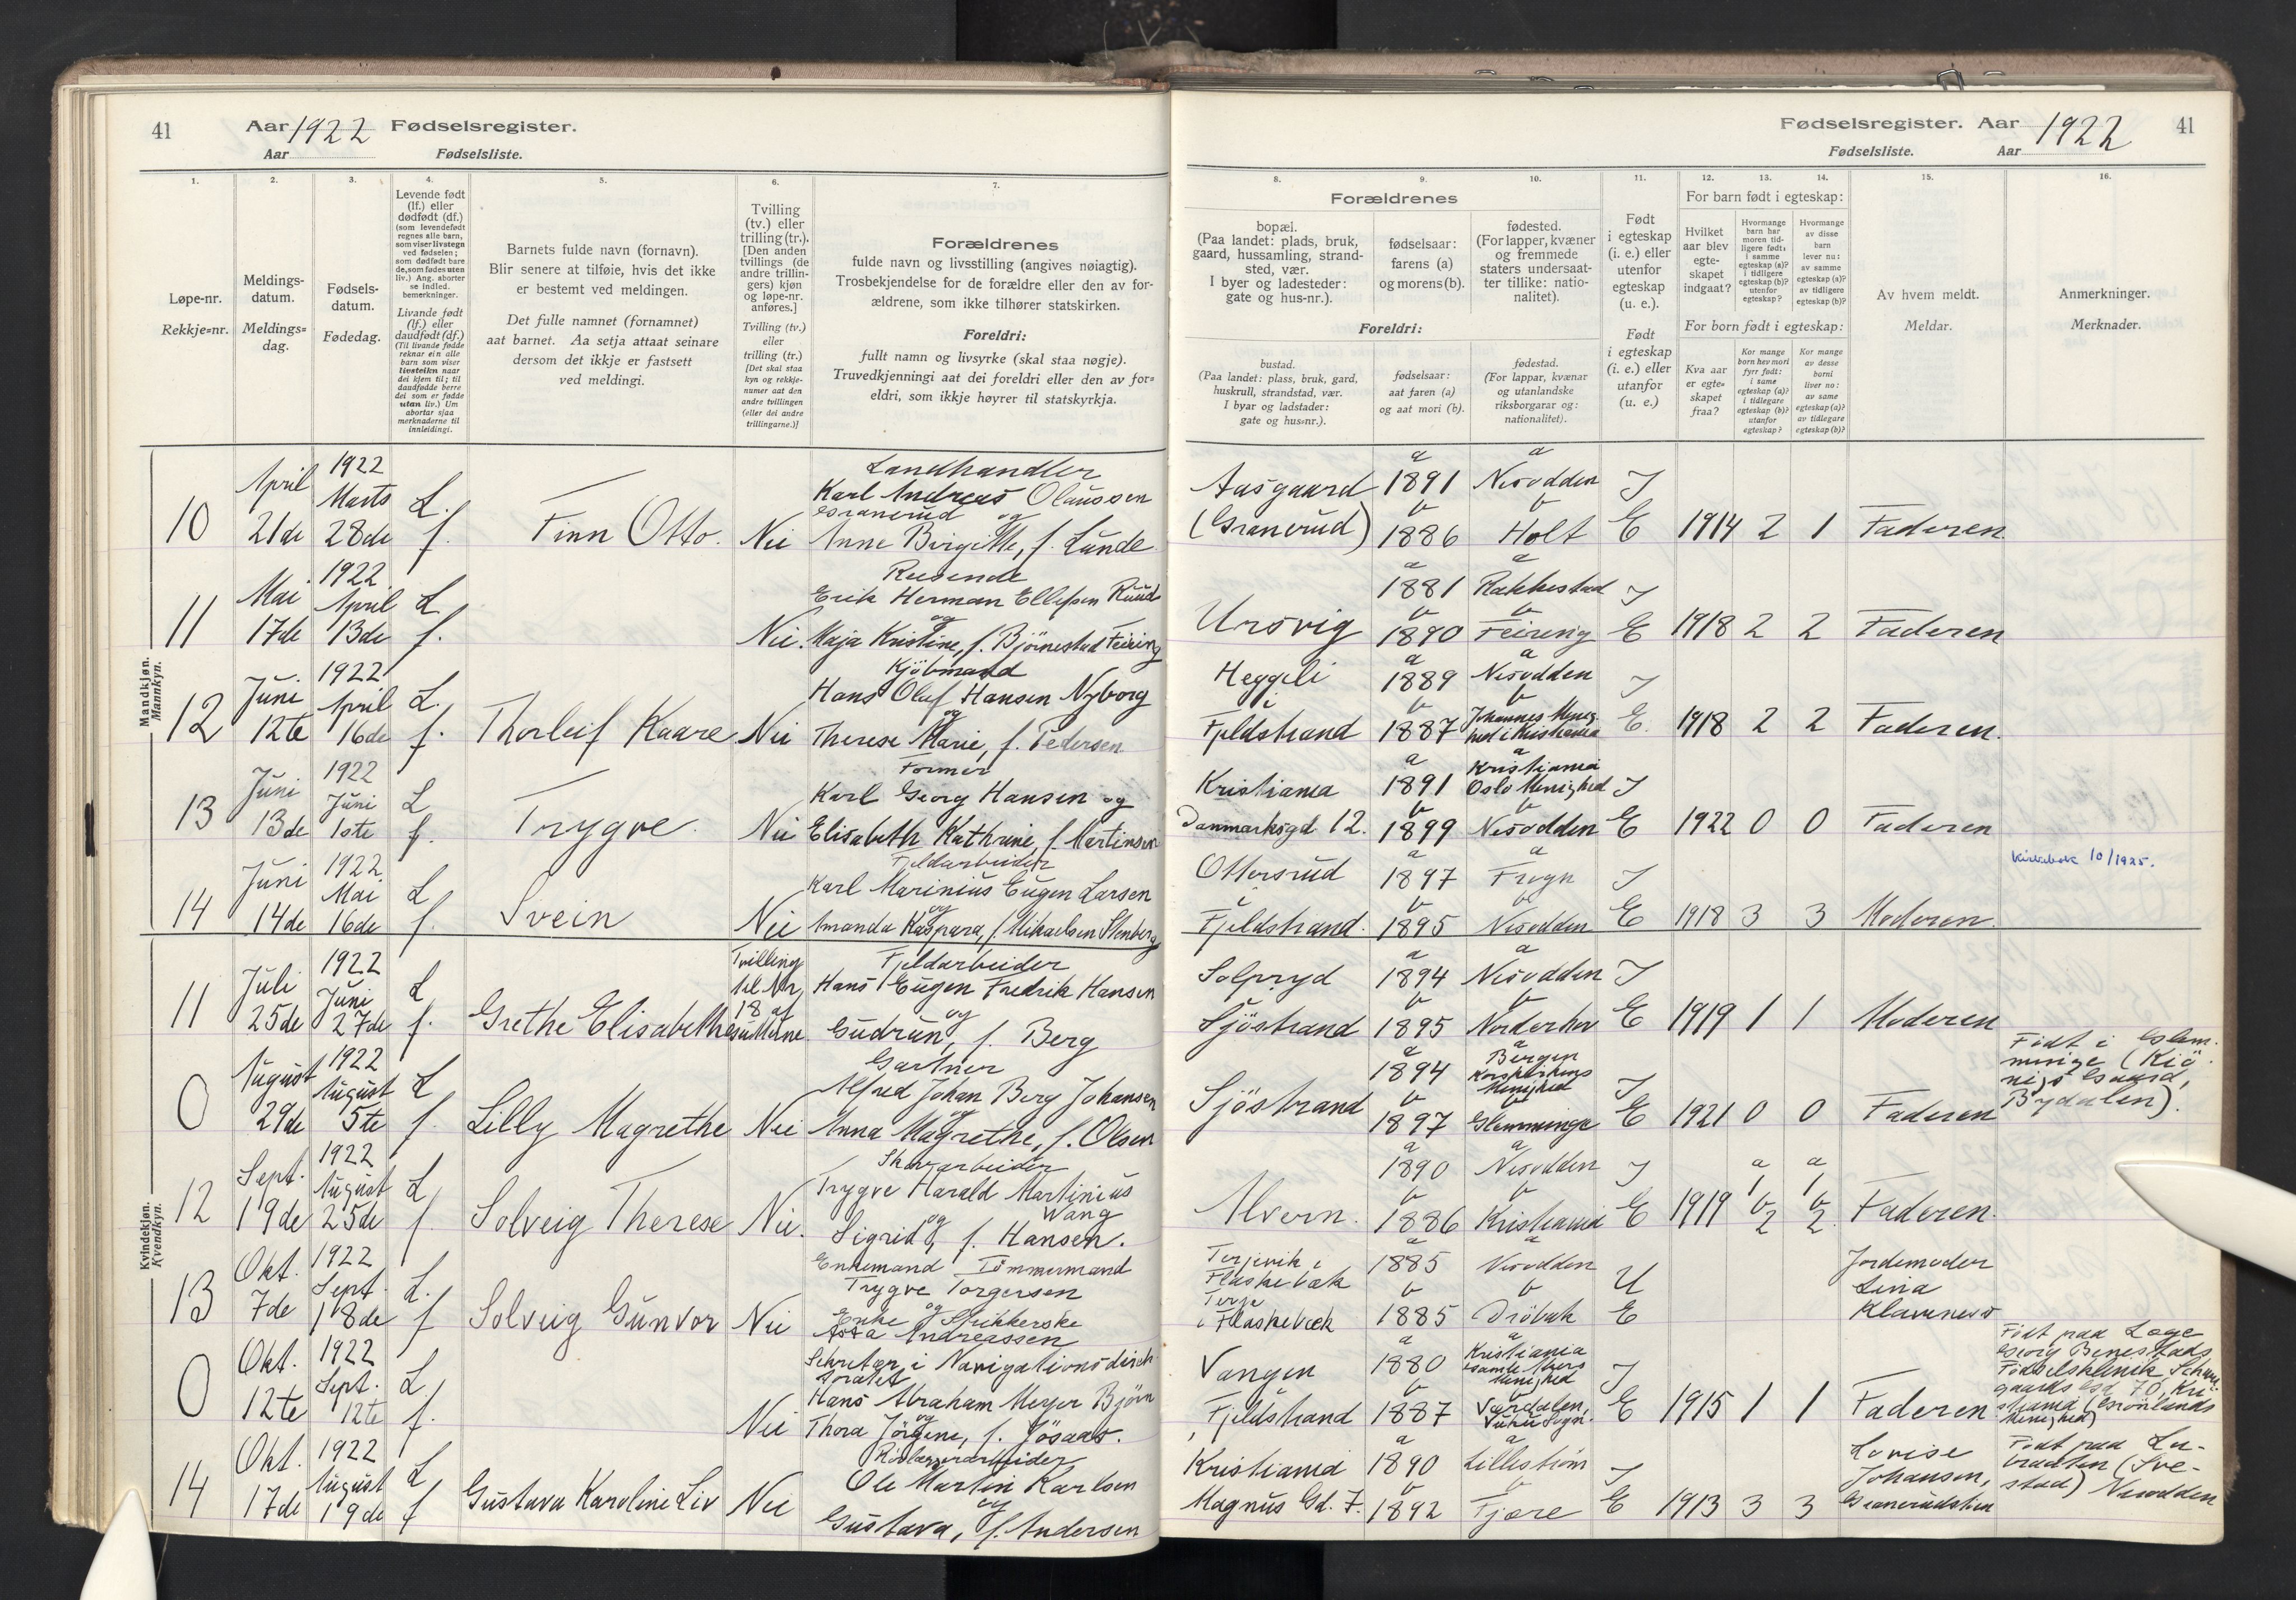 41
Aar 1922 Fødselsregister.
Aar Fødselsliste.
Fødselsregister. Aar 1922
41
Fødselsliste. Aar
1.
2.
3.
4.
5.
6.
7.
Løpe-nr.
Rekkje=nr.
Meldings-
datum.
Meldings=
dag.
Fødsels-
datum.
Fødedag.
Levende født
(lf.) eller
dødfødt (df.)
(som levendefødt
regnes alle barn,
som viser livstegn
ved fødselen;
som dødfødt bare
de, som fødes uten
liv.) Ang. aborter
se indled.
bemerkninger.
Livande født
(lf.) eller
daudfødt (df.)
(Til livande fødde
reknar ein alle
barn som viser
livsteikn naar
dei kjem til; til
daudfødde berre
dei som er fødde
utan liv.) Um
abortar sjaa
merknaderne til
innleidingi.
Barnets fulde navn (fornavn).
Blir senere at tilføie, hvis det ikke
er bestemt ved meldingen.
Det fulle namnet (fornamnet)
aat barnet. Aa setja attaat seinare
dersom det ikkje er fastsett
ved meldingi.
Tvilling
(tv.) eller
trilling (tr.).
[Den anden
tvillings (de
andre trillin-
gers) kjøn
og løpe-nr.
anføres.]
Tvilling (tv.)
eller
trilling (tr.)
[Det skal staa
kyn og rekkje-
numer aat den
andre tvillingen
(eller dei andre
trillingarne.)]
Forældrenes
fulde navn og livsstilling (angives nøiagtig).
Trosbekjendelse for de forældre eller den av for-
ældrene, som ikke tilhører statskirken.
Foreldri:
fullt namn og livsyrke (skal staa nøgje).
Truvedkjenningi aat dei foreldri eller den av for=
eldri, som ikkje høyrer til statskyrkja.
8.
9.
10.
11.
12.
13.
14.
15.
16.
Forældrenes
bopæl.
(Paa landet: plads, bruk,
gaard, hussamling, strand-
sted, vær.
I byer og ladesteder:
gate og hus-nr.).
fødselsaar:
farens (a)
og morens (b).
fødested.
(For lapper, kvæner
og fremmede
staters undersaat-
ter tillike: natio-
nalitet).
Foreldri:
bustad.
(Paa landet: plass, bruk, gard,
huskrull, strandstad, vær.
I byar og ladstader:
gate og hus=nr.).
fødselsaar:
aat faren (a)
og aat mori (b).
fødestad.
(For lappar, kvænar
og utanlandske
riksborgarar og:
nationalitet).
Født
i egteskap
(i. e.) eller
utenfor
egteskap
(u. e.).
Født
i egteskap
(i. e.) eller
utanfor
(u. e.)
For barn født i egteskap:
Hvilket
aar blev
egte-
skapet
indgaat?
Hvormange
barn har
moren tid-
ligere født:
i samme
egteskap (a)?
i tidligere
egteskap (b)?
utenfor
egteskap?
Hvormange
av disse
barn
lever nu:
av samme
egteskap (a)?
av tidligere
egteskap (b)?
For born født i egteskap:
Kva aar
er egte=
skapet
fraa?
Kor mange
born hev mori
fyrr født:
i same
egteskap (a)?
i tidlegare
egteskap (b)?
utanfor
egteskap?
Kor mange
av desse
borni
liver no:
av same
egteskap (a)?
av tidlegare
egteskap (b)?
Av hvem meldt.
Meldar.
Anmerkninger.
Merknader.
Mandkjøn.
Mannkyn.
10 April 21de 1922 Marts 28de L. f. Finn Otto. Nei Landhandler
Karl Andreas Olaussen
Granerud og
Anne Birgitte, f. Lunde
Aasgaard (Granerud) a 1891 b 1886 a Nesodden b Holt I E 1914 2 1 Faderen
11 Mai 17de 1922 April 13de L f. Nei. Reisende
Erik Herman Ellefsen Ruud
og
Maja Kristine, f. Bjørnestad Feiring
Ursvig a 1881 b 1890 a Rakkestad b Feiring I E 1918 2 2 Faderen
12 Juni 12te 1922 April 16de L. f. Thorleif Kaare Nei Kjøbmand
Hans Oluf Hansen Nyborg
og
Therese Marie, f. Pedersen
Heggeli i Fjeldstrand a 1889 b 1887 a Nesodden b Johannes Menig-
hed i Kristiania I E. 1918 2 2 Faderen.
13 Juni 13de 1922 Juni 1ste L f. Trygve. Nei Former
Karl Georg Hansen og
Elisabeth Kathrine, f. Martinsen
Kristiania Danmarksgd. 12. a 1891 b 1899 a Kristiania
Oslo Menighed b Nesodden I E 1922 0 0 Faderen
14 Juni 14de 1922 Mai 16de L f. Svein Nei Fjeldarbeider
Karl Marinius Eugen Larsen
og
Amanda Kaspara, f. Mikaelsen Stenberg
Ottersrud i Fjeldstrand. a 1897 b 1895 a Frogn b Nesodden I E 1918 3 3 Moderen.
Kirkebok 10/1925.
Kvindekjøn.
Kvendkyn.
11 Juli 25de 1922 Juni 27de L f. Grethe Elisabeth Tvilling
til Nr
18 af
guttene Fjeldarbeider
Hans Eugen Fredrik Hansen
og
Gudrun, f. Berg
Solpryd Sjöstrand a 1894 b 1895 a Nesodden b Norderhov I E 1919 1 1 Moderen
0 August 29de 1922 August 5te L f. Lilly Magrethe Nei Gartner
Alfred Johan Berg Johansen
og
Anna Magrethe, f. Olsen
Sjöstrand a 1894 b 1897 a Bergen
Korskirkens
Menighed b Glemminge I E 1921 0 0 Faderen
Født i Glem-
minge (Kjö-
nigs Gaard,
Bydalen).
12 Sept. 19de 1922 August 25de L f Solveig Therese Nei. Skovarbeider
Trygve Harald Martinius
Wang
og
Sigrid, f. Hansen.
Alvern. a 1890 b 1886 a Nesodden b Kristiania I E 1919 a 1 b 2 a 1 b 2. Faderen.
13 Okt. 7de 1922 Sept. 18de L. f Solveig Gunvor Nei Enkemand Tømmermand
Trygve Torgersen
og
Enke Strikkerske
Asta Andreassen
Terjevik i
Flaskebæk
Terje
i Flaskebæk a 1885 b 1885 a Nesodden b Dröbak U E Jordemoder
Lina
Klavness
0 Okt. 12te 1922 Sept. 12te L. f. Nei Sekretær i Navigationsdirek
toratet
Hans Abraham Meyer Bjørn
og
Thora Jörgine, f. Jösaas.
Vangen i Fjeldstrand a 1880 b 1887 a Kristiania
Gamle Akers
Menighed b Værdalen,
Vuku Sogn. I E 1915 1 1 Faderen
Født paa Læge
Georg Benestads
Fødselsklinik, Schwei-
gaards Gd. 70, Kri-
stiania (Grönlands
Menighed)
14 Okt. 17de 1922 August 19de L f Gustava Karoline Liv Nei Rørlæggerarbeider
Ole Martin Karlsen
og
Gustava, f. Andersen
Kristiania Magnus Gd. 7. a 1890 b 1892 a Lillestrøm b Fjære I E 1913 3 3 Lovise
Johansen,
Granerudstien
Født paa
braaten (Sve-
stad) Nesodden